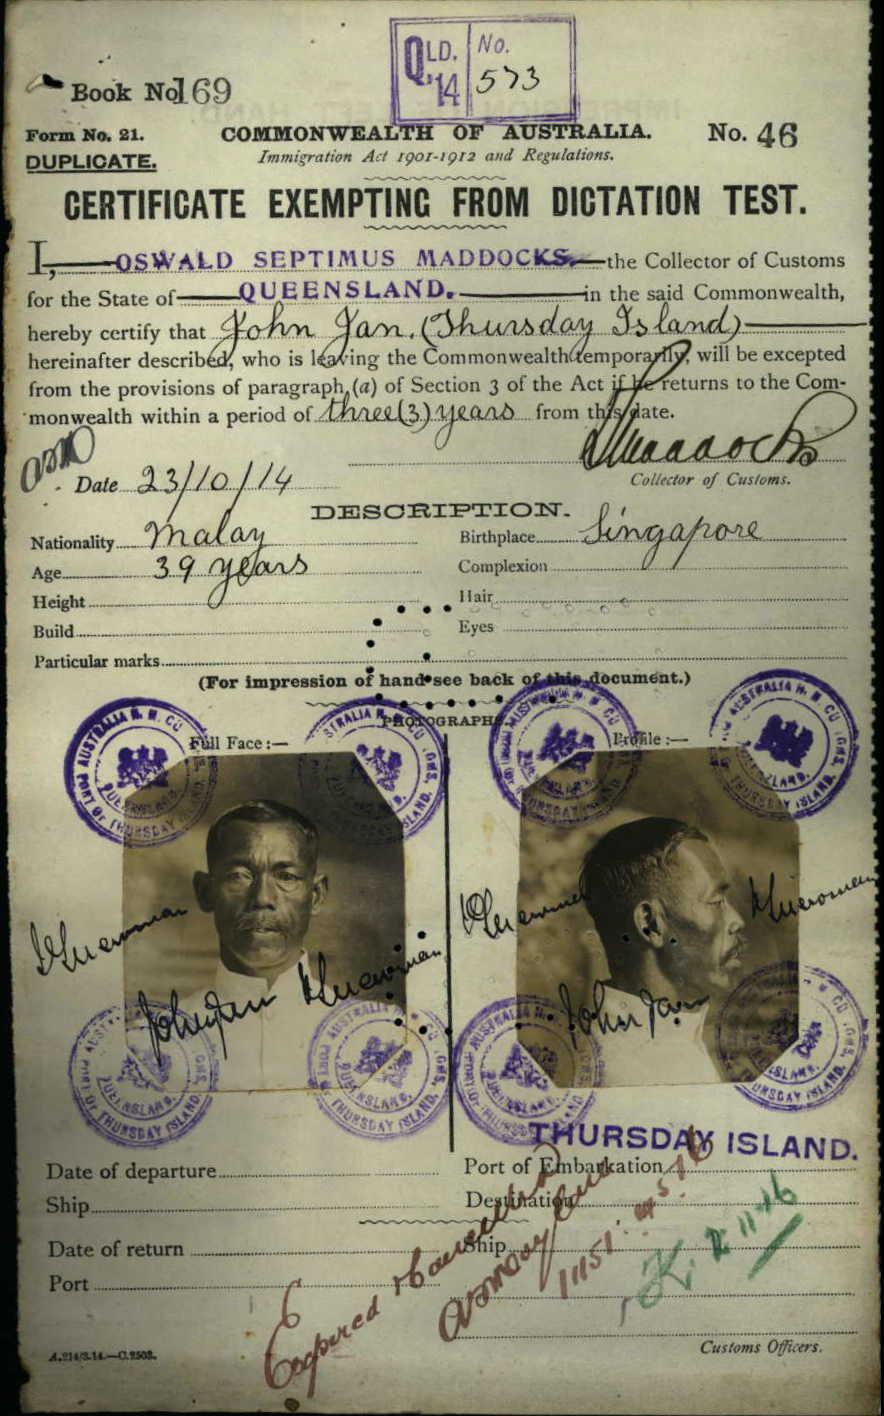 QLD. No.
'14 573
Book No. 169
Form No. 21. COMMONWEALTH OF AUSTRALIA. No. 46
DUPLICATE. Immigration Act 1901-1912 and Regulations.
CERTIFICATE EXEMPTING FROM DICTATION TEST.
I, OSWALD SEPTIMUS MADDOCKS. the Collector of Customs
for the State of QUEENSLAND. in the said Commonwealth,
hereby certify that John Jan. (Thursday Island)
hereinafter described, who is leaving the Commonwealth temporarily, will be excepted
from the provisions of paragraph (a) of Section 3 of the Act if he returns to the Com-
monwealth within a period of three (3) years from this date.
OSMaddocks
Date 23/10/14 Collector of Customs.
DESCRIPTION.
Nationality Malay Birthplace Singapore
Age 39 years Complexion
Height Hair
Build Eyes
Particular marks
(For impression of hand see back of this document.)
PHOTOGRAPHS
Full Face:— Profile:—
John Jan John Jan
THURSDAY ISLAND.
Date of departure Port of Embarkation
Ship Destination
Date of return Ship
Port
Expired
Customs Officers.
A.214/3.14.—C.2503.